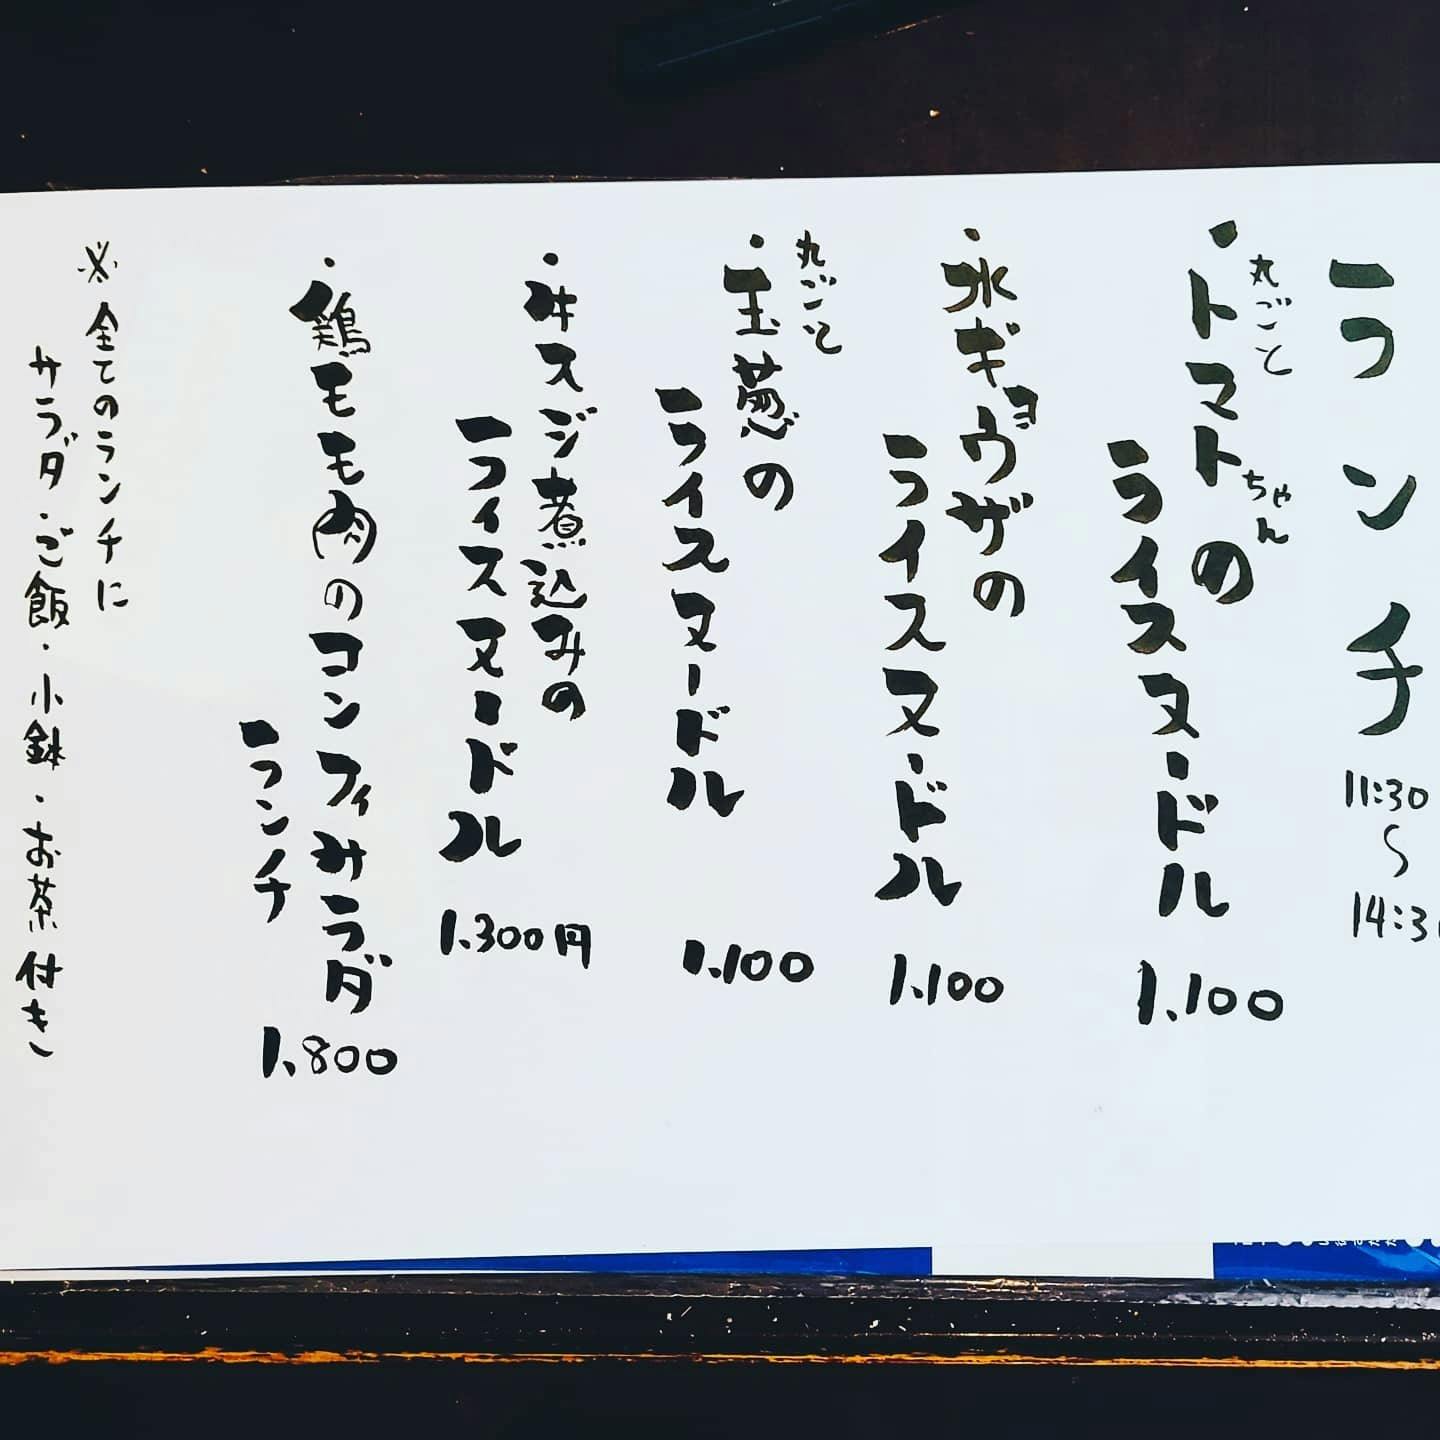 ランチ 11:30〜14:3
・丸ごとトマトちゃんの
ライスヌードル 1.100
・水ギョウザの
ライスヌードル 1.100
・丸ごと玉葱の
ライスヌードル 1.100
・牛スジ煮込みの
ライスヌードル 1.300円
・鶏モモ肉のコンフィサラダ
ランチ 1.800
※全てのランチに
サラダ・ご飯・小鉢・お茶付き